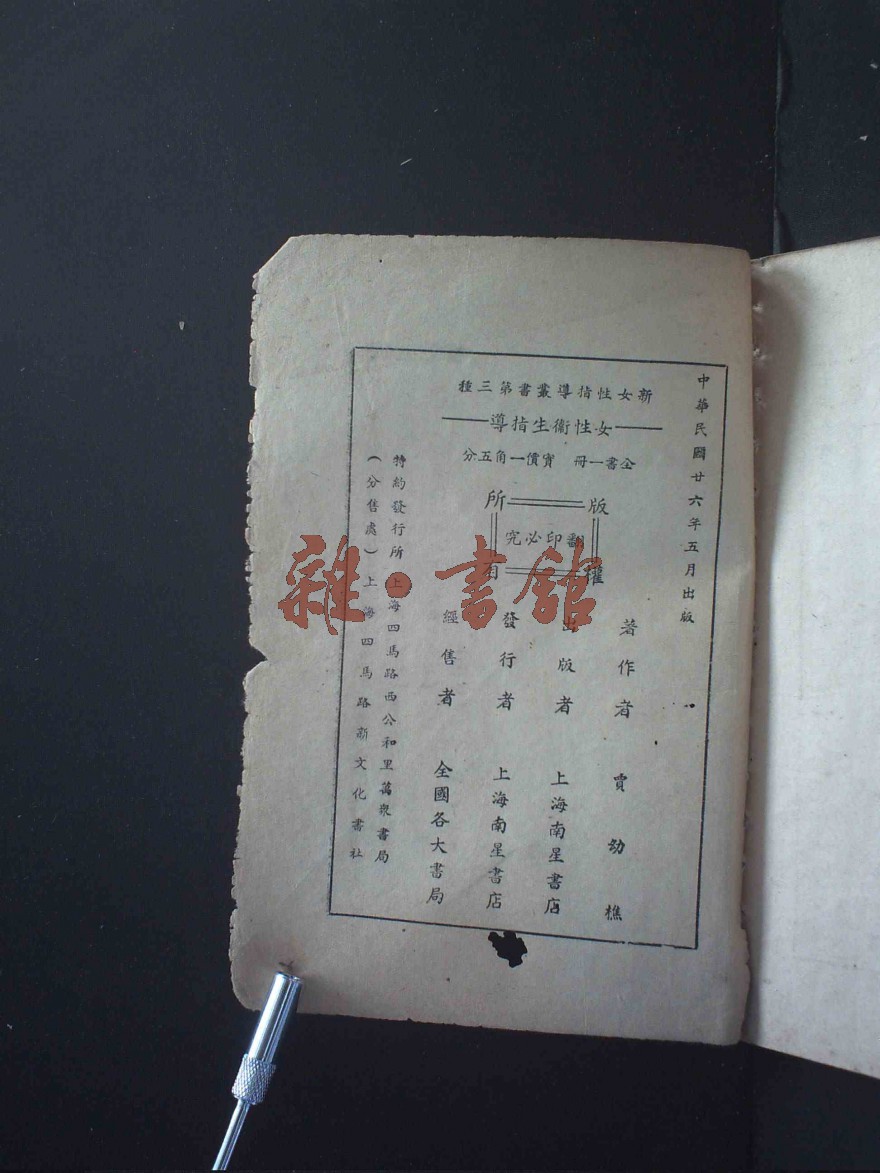 中華民國廿六年五月出版
新女性指導叢書第三種
女性衞生指導
全書一冊 實價一角五分
版權所有
翻印必究
著作者 賈劭樵
出版者 上海南星書店
發行者 上海南星書店
經售者 全國各大書局
特約發行所 上海四馬路西公和里萬衆書局
(分售處) 上海四馬路新文化書社
雜·書館